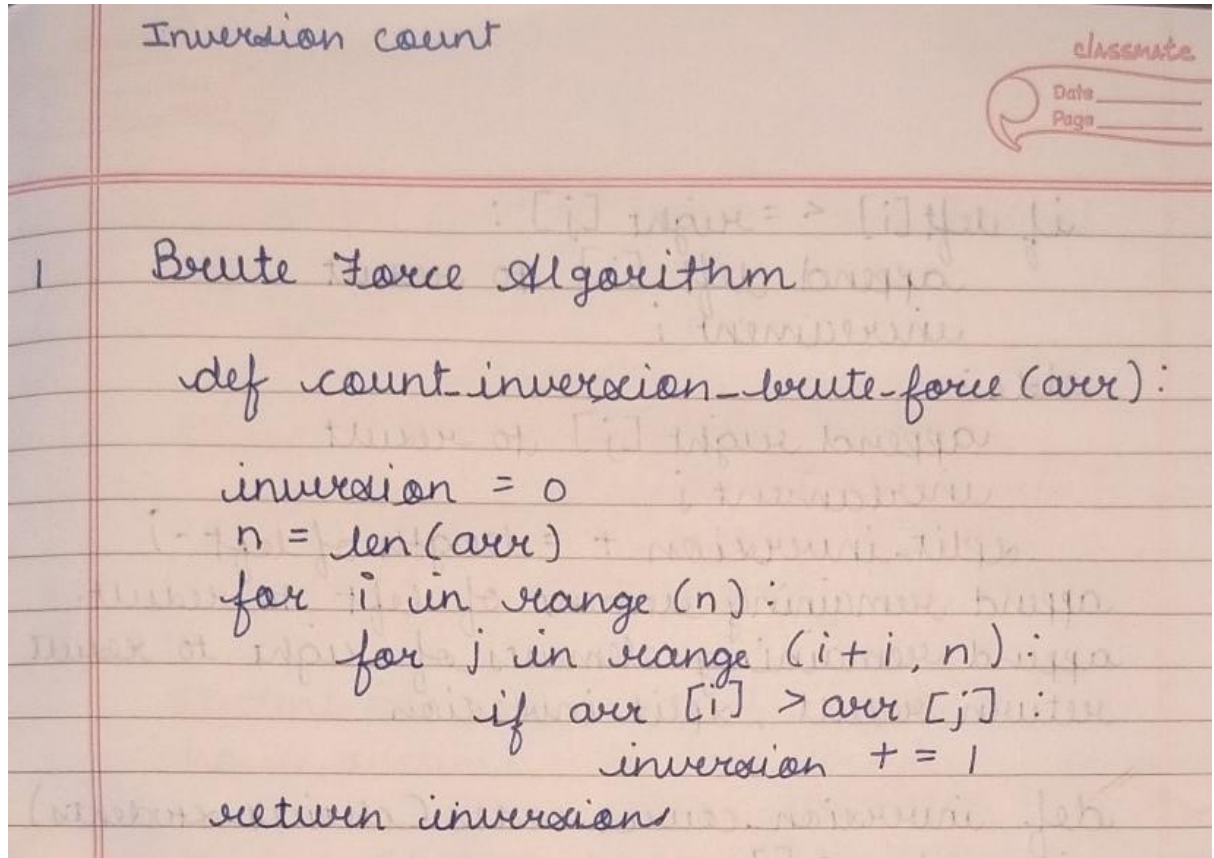 Inversion count
classmate
Date
Page
1 Brute Force Algorithm
def count_inversion_brute-force (arr):
inversion = 0
n = len(arr)
for i in range (n):
for j in range (i+i, n):
if arr [i] > arr [j]:
inversion + = 1
return inversions